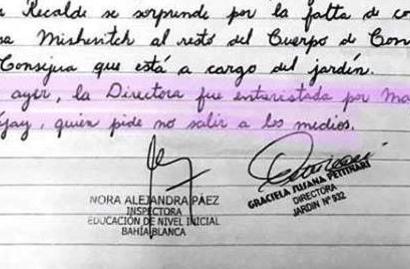 Recalde se sorprende por la falta de co
sa Mishevitch al resto del Cuerpo de Con
Consejua que está a cargo del jardín.
ayer, la Directora fue entrevistada por Ma
Gay, quien pide no salir a los medios.
NORA ALEJANDRA PÁEZ
INSPECTORA
EDUCACIÓN DE NIVEL INICIAL
BAHÍA BLANCA
GRACIELA SUSANA PETTINARI
DIRECTORA
JARDIN Nº 932